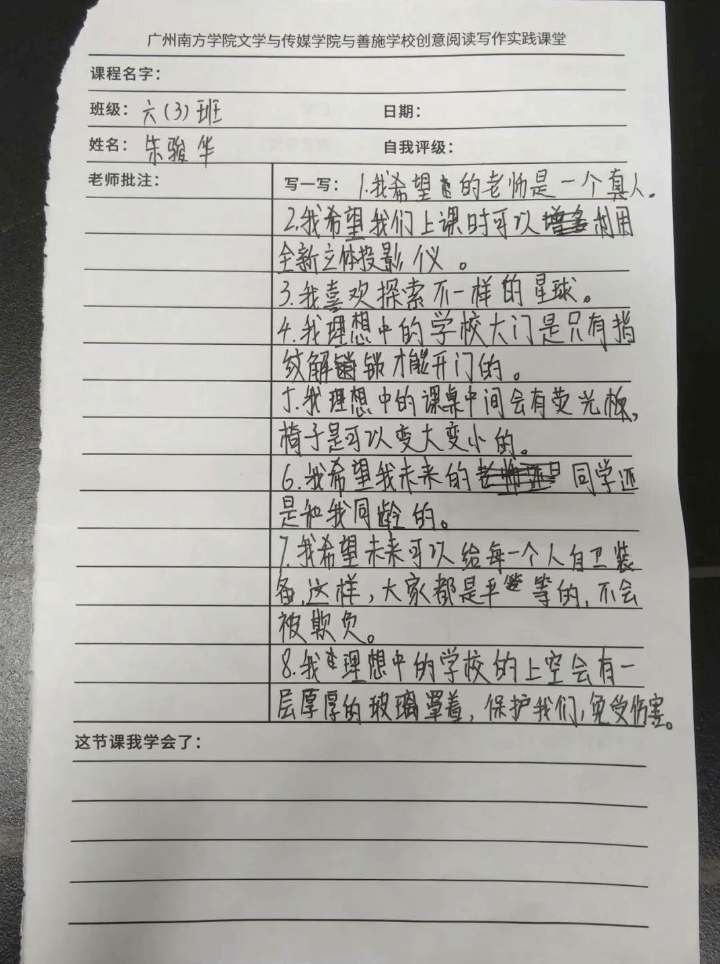 广州南方学院文学与传媒学院与善施学校创意阅读写作实践课堂
课程名字：
班级：六(3)班
日期：
姓名：朱骏华
自我评级：
老师批注：
写一写：1.我希望的老师是一个真人。
2.我希望我们上课时可以利用
全新立体投影仪。
3.我喜欢探索不一样的星球。
4.我理想中的学校大门是只有指
纹解锁才能开门的。
5.我理想中的课桌中间会有荧光板，
椅子是可以变大变小的。
6.我希望我未来的同学还
是和我同龄的。
7.我希望未来可以给每一个人自卫装
备，这样，大家都是平等的，不会
被欺负。
8.我理想中的学校的上空会有一
层厚厚的玻璃罩着，保护我们，免受伤害。
这节课我学会了：